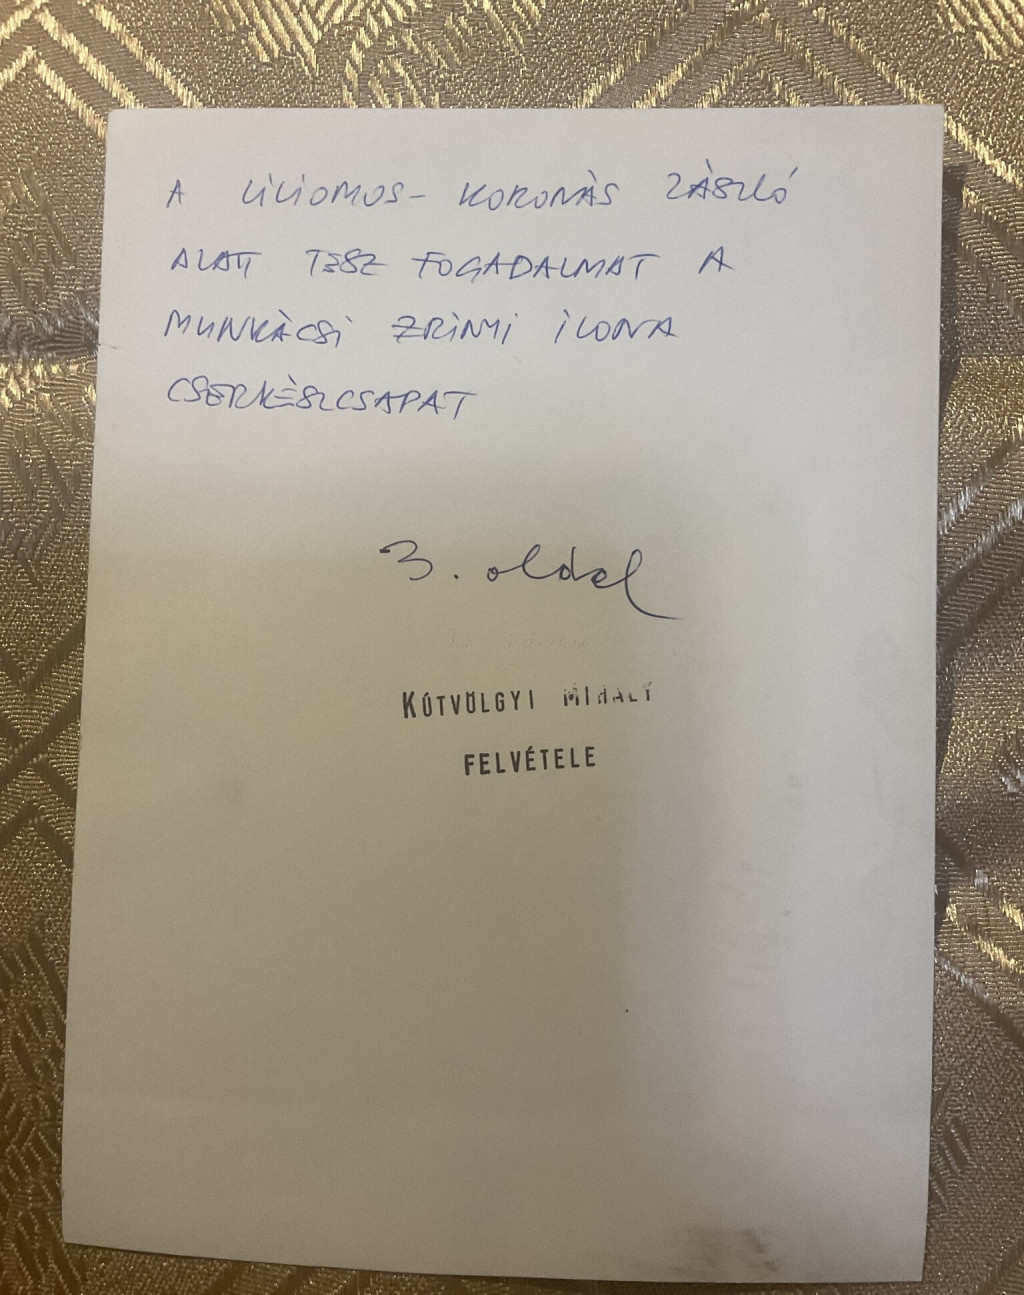 A LILIOMOS- KORONÁS ZÁSZLÓ
ALATT TESZ FOGADALMAT A
MUNKÁCSI ZRINYI ILONA
CSERKÉSZCSAPAT
3. oldal
KÚTVÖLGYI MIHÁLY
FELVÉTELE